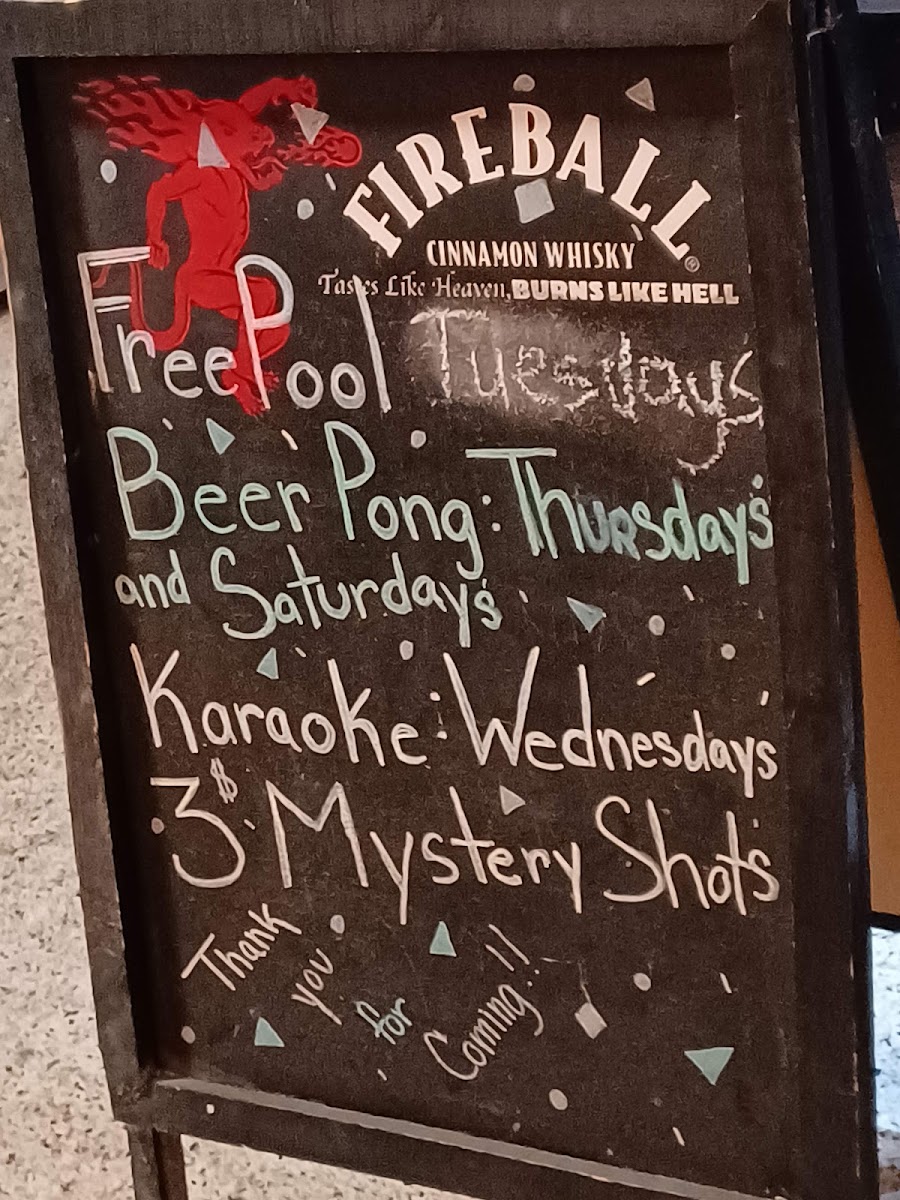 FIREBALL®
CINNAMON WHISKY
Tastes Like Heaven, BURNS LIKE HELL
Free Pool Tuesdays
Beer Pong: Thursday's
and Saturday's
Karaoke: Wednesday's
3$ Mystery Shots
Thank
you
for
Coming!!